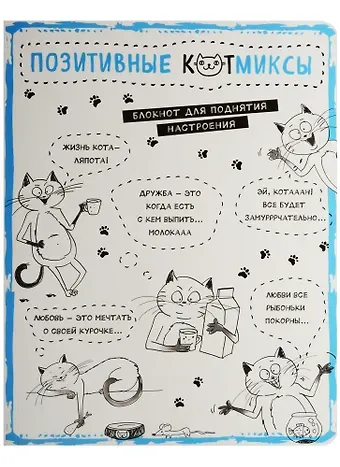 ПОЗИТИВНЫЕ КОТМИКСЫ
БЛОКНОТ ДЛЯ ПОДНЯТИЯ
НАСТРОЕНИЯ
ЖИЗНЬ КОТА-
ЛЯПОТА!
ДРУЖБА – ЭТО
КОГДА ЕСТЬ
С КЕМ ВЫПИТЬ...
МОЛОКААА
ЭЙ, КОТАААН!
ВСЕ БУДЕТ
ЗАМУРРРЧАТЕЛЬНО...
ЛЮБОВЬ – ЭТО МЕЧТАТЬ
О СВОЕЙ КУРОЧКЕ...
ЛЮБВИ ВСЕ
РЫБОНЬКИ
ПОКОРНЫ...